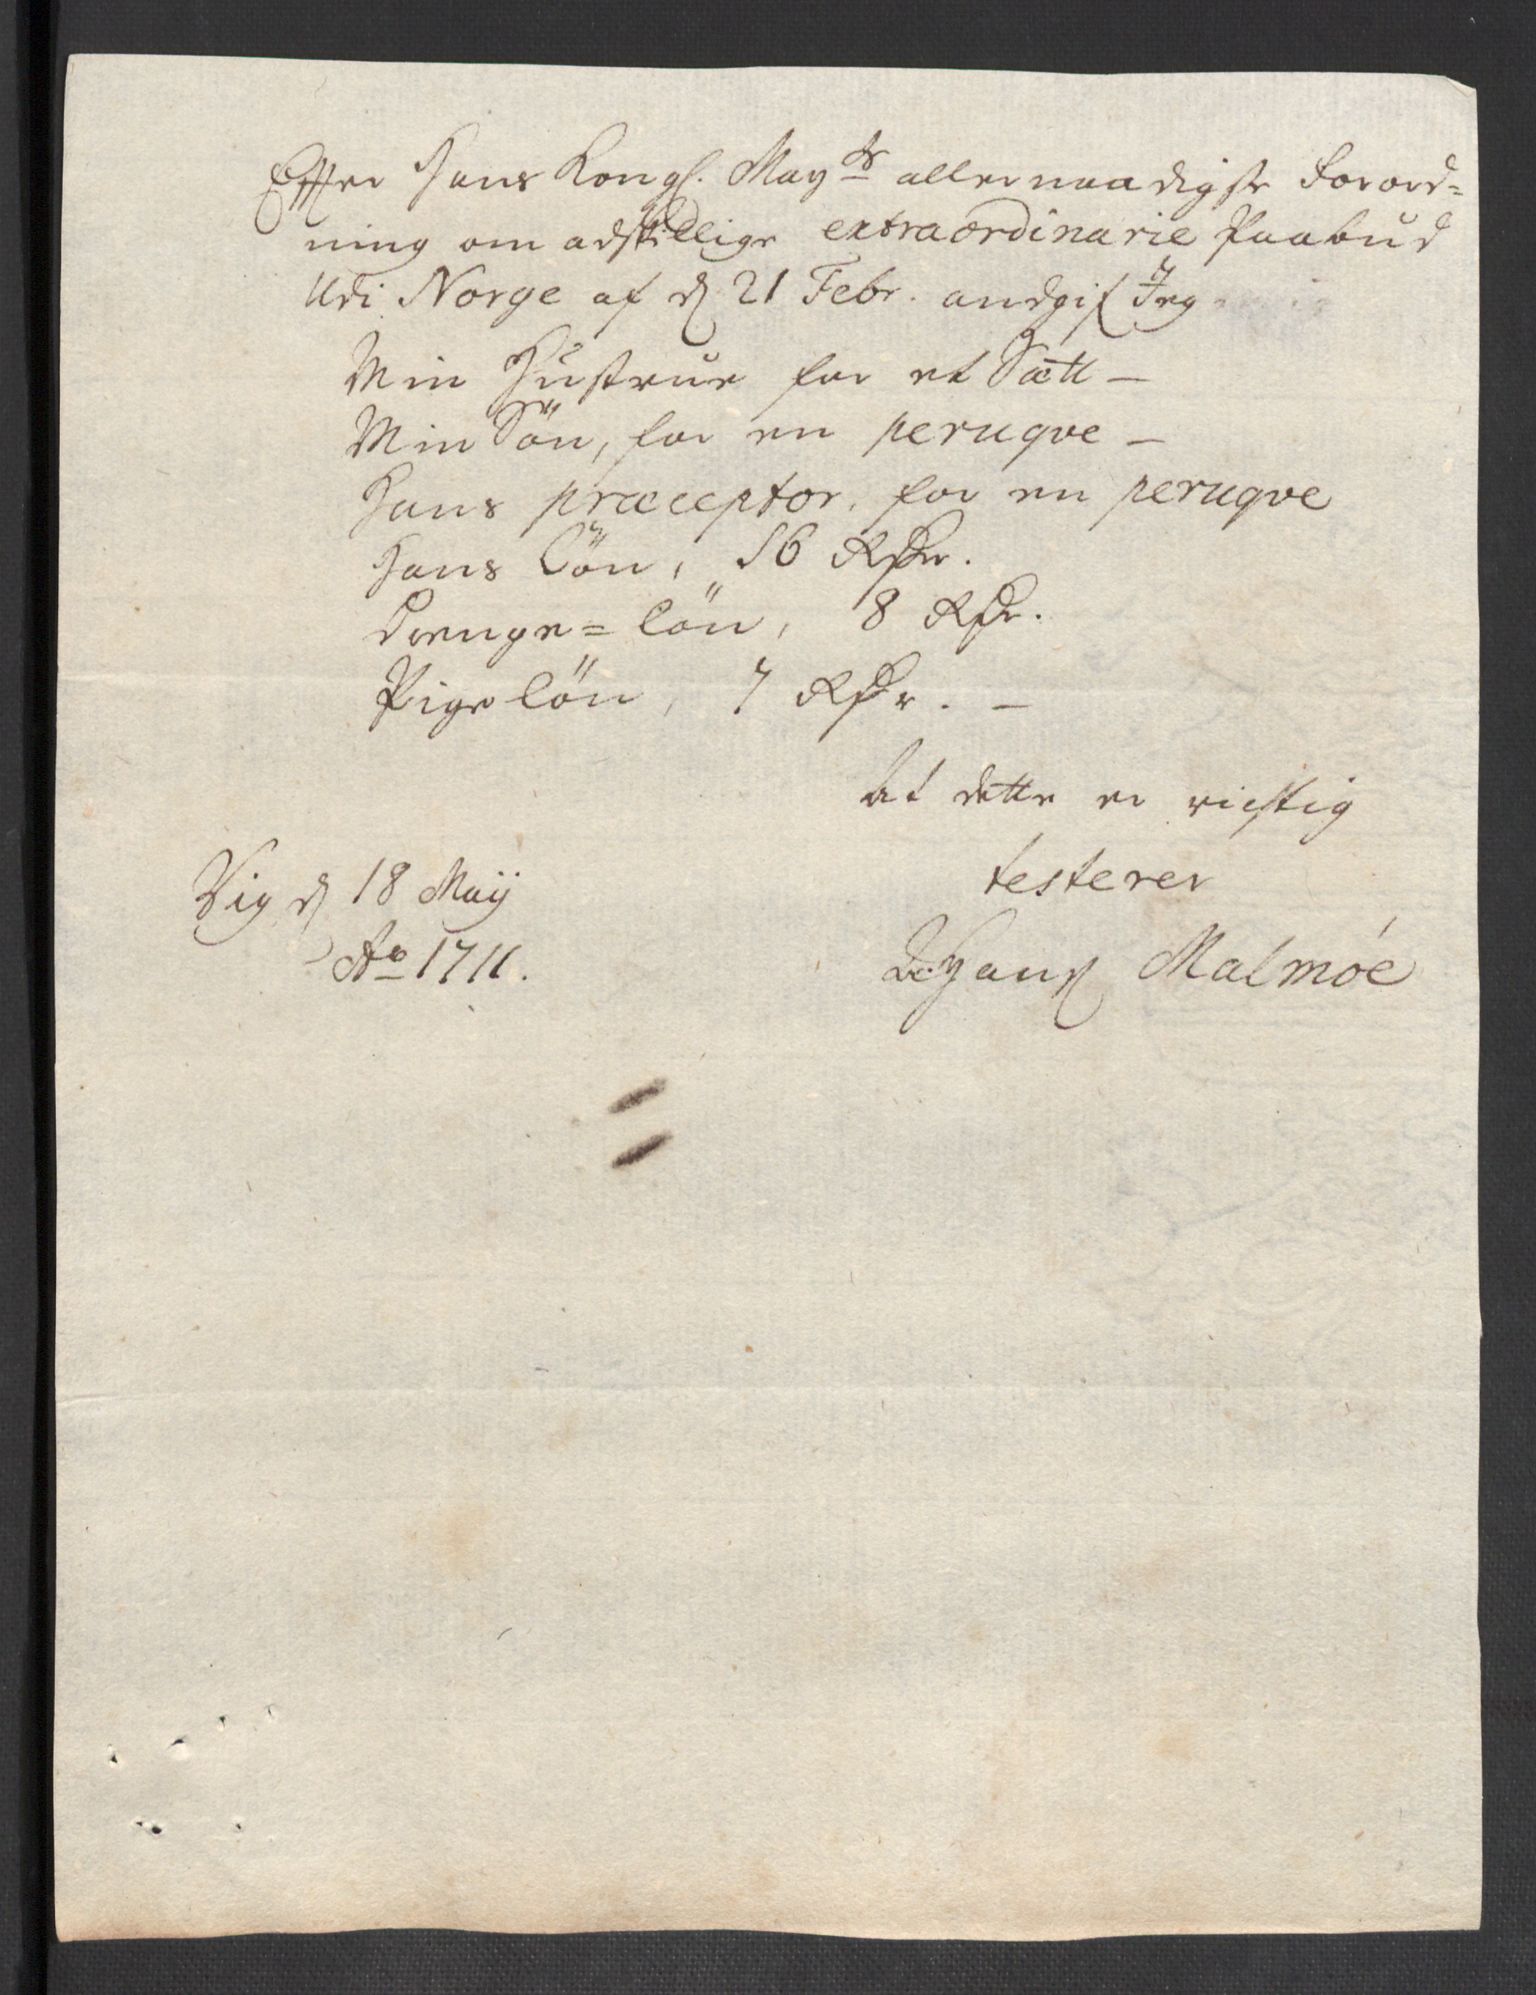 Efter Hans Kongl. May:ts allernaadigste Forord=
ning om adskillige extraordinarie Paabud
Udi Norge af d 21 Febr. andgif Jeg
Min Hustrue for et Sætt –
Min Sön, for en peruqve –
Hans præceptor, for en peruqve
Hans Lön, 16 Rdr.
Drenge=lön, 8 Rdr.
Pige lön, 7 Rdr. –
At dette er rigtig
testerer
Vig d 18 Maij
Ao 1711.
Hans Malmöe